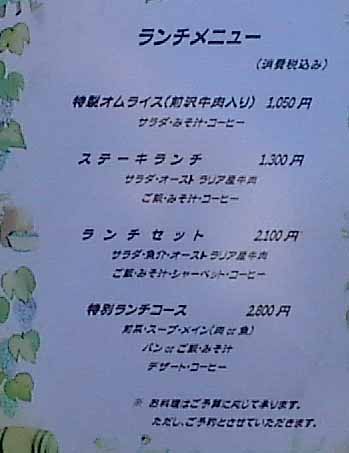 ランチメニュー
（消費税込み）
特製オムライス（前沢牛肉入り） 1,050円
サラダ・みそ汁・コーヒー
ステーキランチ 1,300円
サラダ・オーストラリア産牛肉
ご飯・みそ汁・コーヒー
ランチセット 2,100円
サラダ・魚介・オーストラリア産牛肉
ご飯・みそ汁・シャーベット・コーヒー
特別ランチコース 2,800円
前菜・スープ・メイン（肉or魚）
パンorご飯・みそ汁
デザート・コーヒー
※ お料理はご予算に応じて承ります。
ただし、ご予約とさせていただきます。